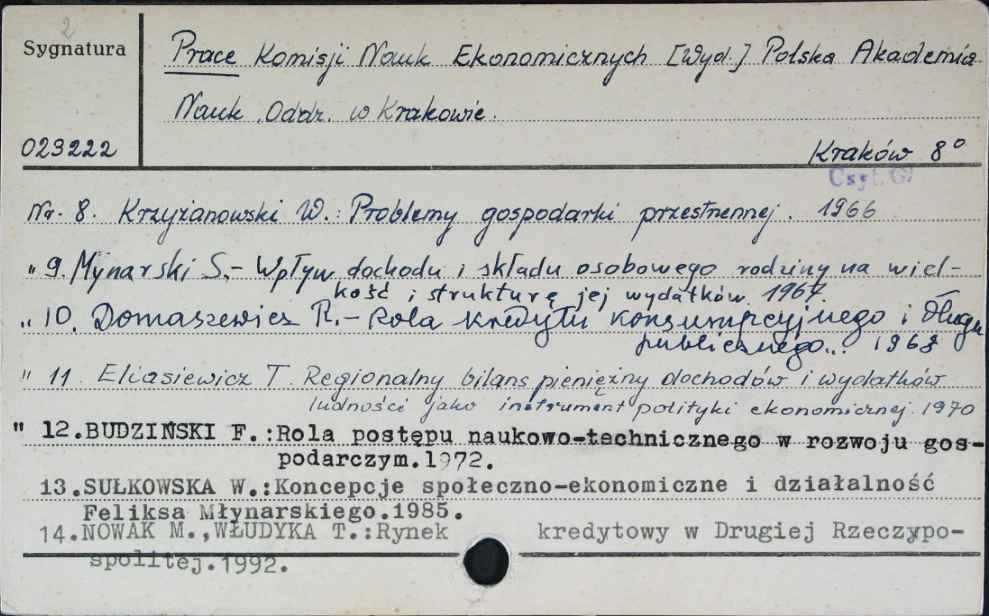 2
Sygnatura
Prace Komisji Nauk Ekonomicznych [Wyd.] Polska Akademia
Nauk. Oddz. w Krakowie.
023222
Kraków 8°
Czyt. Gł
Nr. 8. Krzyżanowski W.: Problemy gospodarki przestrzennej. 1966
" 9. Młynarski S.- Wpływ dochodu i składu osobowego rodziny na wiel-
kość i strukturę jej wydatków. 1967.
" 10. Domaszewicz R.- Rola kredytu konsumpcyjnego i długu
publicznego... 1968
" 11. Eliasiewicz T. Regionalny bilans pieniężny dochodów i wydatków
ludności jako instrument polityki ekonomicznej. 1970
" 12.BUDZIŃSKI F.:Rola postępu naukowo-technicznego w rozwoju gos-
podarczym.1972.
13.SUŁKOWSKA W.:Koncepcje społeczno-ekonomiczne i działalność
Feliksa Młynarskiego.1985.
14.NOWAK M.,WŁUDYKA T.:Rynek kredytowy w Drugiej Rzeczypo-
spolitej.1992.